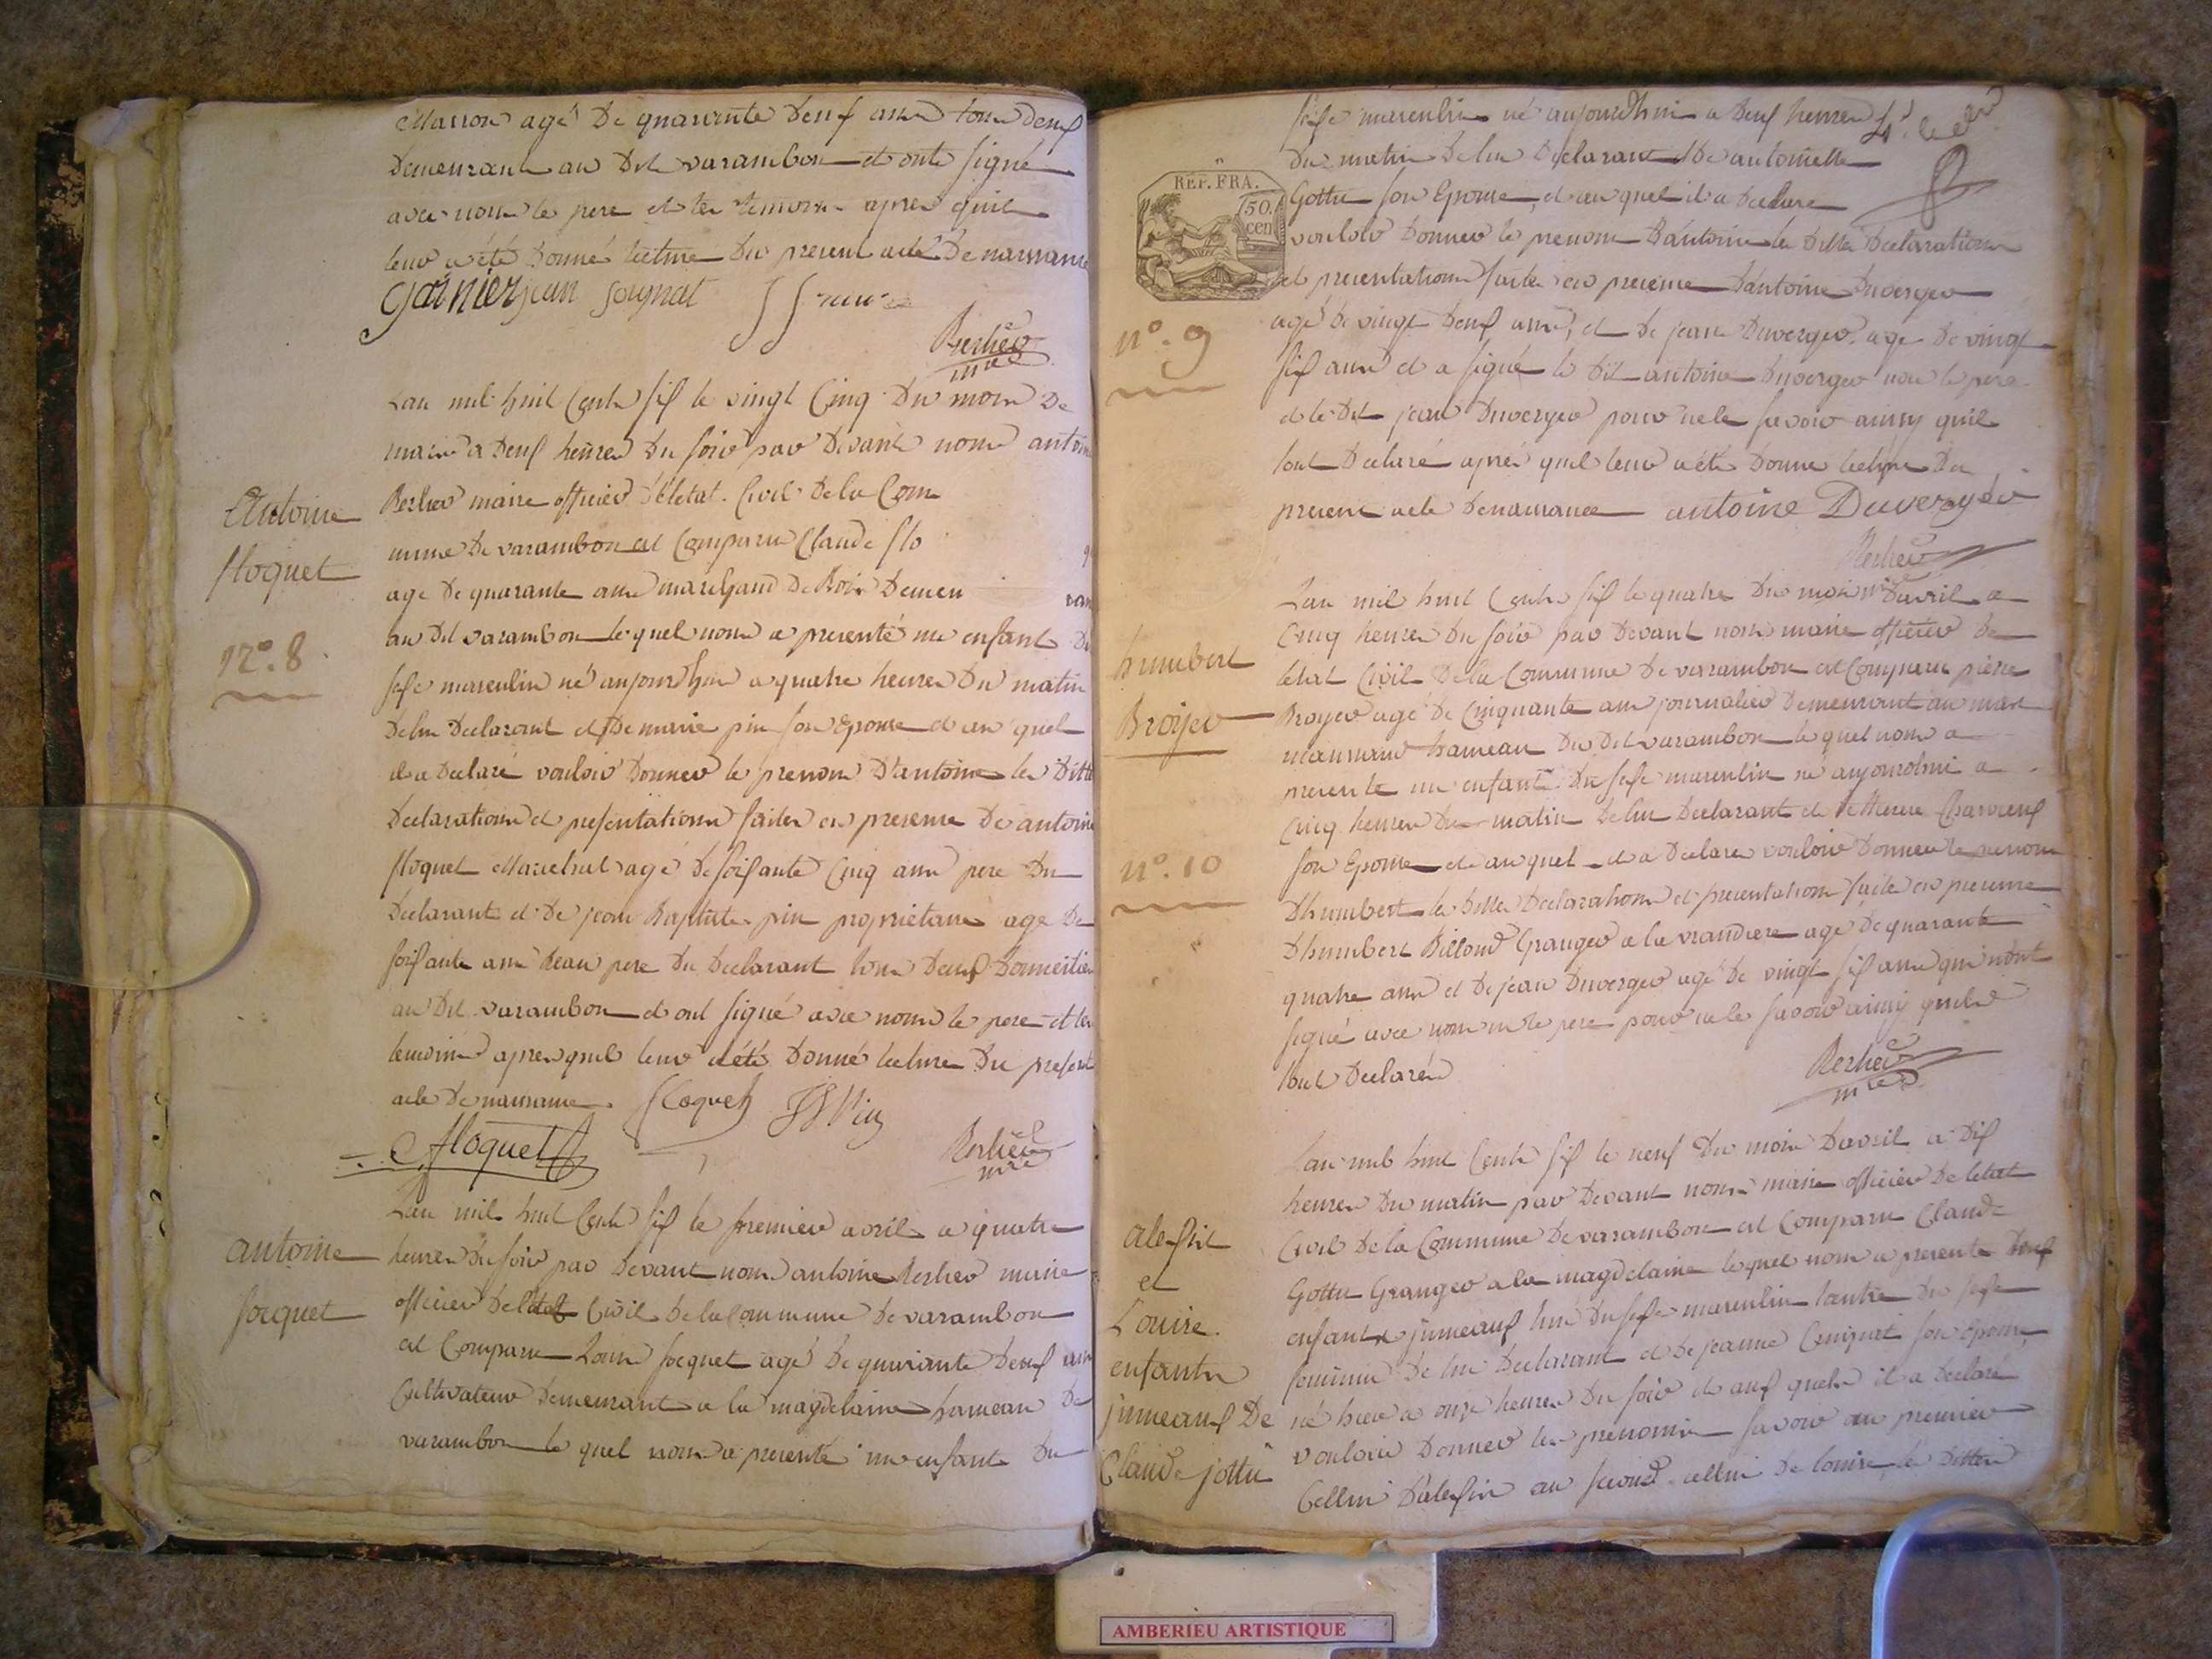 Masson agé De quarante Deux ans tous deux
Demeurants au Dit varambon et onts signé
avec nous le pere et les temoins apres quil
leur a été Donné lecture Du present acte De naissance
garnier jean soignat
Berlier
mre
Lan mil huit Cents six le vingt Cinq Du mois De
mars a Deux heures Du soir par Devant nous antoine
Berlier maire officier De letat Civil De la Com
mune De varambon est Comparu Claude flo
age De quarante ans marchand De Bois Demeu
au Dit varambon lequel nous a presenté un enfant Du
sexe masculin né aujourdhui a quatre heures Du matin
De lui Declarant et De marie pin son Epouse et au quel
il a Declaré vouloir Donner le prenom D'antoine les Dittes
Declarations et presentations faites en presence De antoine
floquet Marechal agé De soixante Cinq ans pere Du
Declarant et De jean Baptiste pin proprietaire age De
soixante ans Beau pere Du Declarant tous Deux Domiciliés
au Dit varambon et ont signé avec nous le pere et les
temoins apres quil leur a été Donné lecture Du present
acte De naissance. floquet JB Pin
floquet
Berlier
mre
Lan mil huit Cents six le premier avril a quatre
heures Du soir par Devant nous antoine Berlier maire
officier De letat Civil De la Commune De varambon
est Comparu Louis socquet agé De quarante Deux ans
Cultivateur Demeurant a la magdelaine hameau De
varambon le quel nous a presenté un enfant Du
Antoine
floquet
n° 8
antoine
socquet
sexe masculin né aujourdhui a Deux heures
Du matin De lui Declarant et De antoinette
Gottu son Epouse, et au quel il a Declare
vouloir Donner le prenom D'antoine les Dittes Declarations
et presentations faites en presence D'antoine Duverger
agé De vingt Deux ans, et De jean Duverger age De vingt
six ans et a signé le Dit antoine Duverger non le pere
et le Dit jean Duverger pour ne le savoir ainsy quils
lont Declaré apres quil leur a été Donné lecture Du
present acte De naissance antoine Duverger
Berlier
mre
Lan mil huit Cents six le quatre Du mois Davril a
Cinq heures Du soir par Devant nous maire officier De
letat Civil De la Commune De varambon est Comparu pierre
Broyer agé De Cinquante ans journalier Demeurant au mas
hameau Du Dit varambon lequel nous a
presenté un enfant Du sexe masculin né aujourdhui a
Cinq heures Du matin De lui Declarant et De
son Epouse et au quel il a Declare vouloir Donner le prenom
Dhumbert les Dittes Declarations et presentations faites en presence
Dhumbert Billoud Granger a la age De quarante
quatre ans et De jean Duverger agé De vingt six ans qui nont
signé avec nous ni le pere pour ne le savoir ainsy quils
lont Declarés
Berlier
mre
Lan mil huit Cents six le neuf Du mois Davril a Dix
heures Du matin par Devant nous maire officier De letat
Civil De la Commune De varambon est Comparu Claude
Gottu Granger a la magdelaine lequel nous a presenté Deux
enfants jumeaux lun Du sexe masculin lautre Du sexe
feminin De lui Declarant et De jeanne son Epouse,
né hier a onze heures Du soir et aux quels il a Declaré
vouloir Donner les prenoms savoir au premier
Cellui D'alexsis au second cellui De louise, les Dittes
REP. FRA.
50.
cen
n° 9
humbert
Broyer
n° 10
alexsis
et
Louise.
enfants
jumeaux De
Claude jottu
AMBERIEU ARTISTIQUE